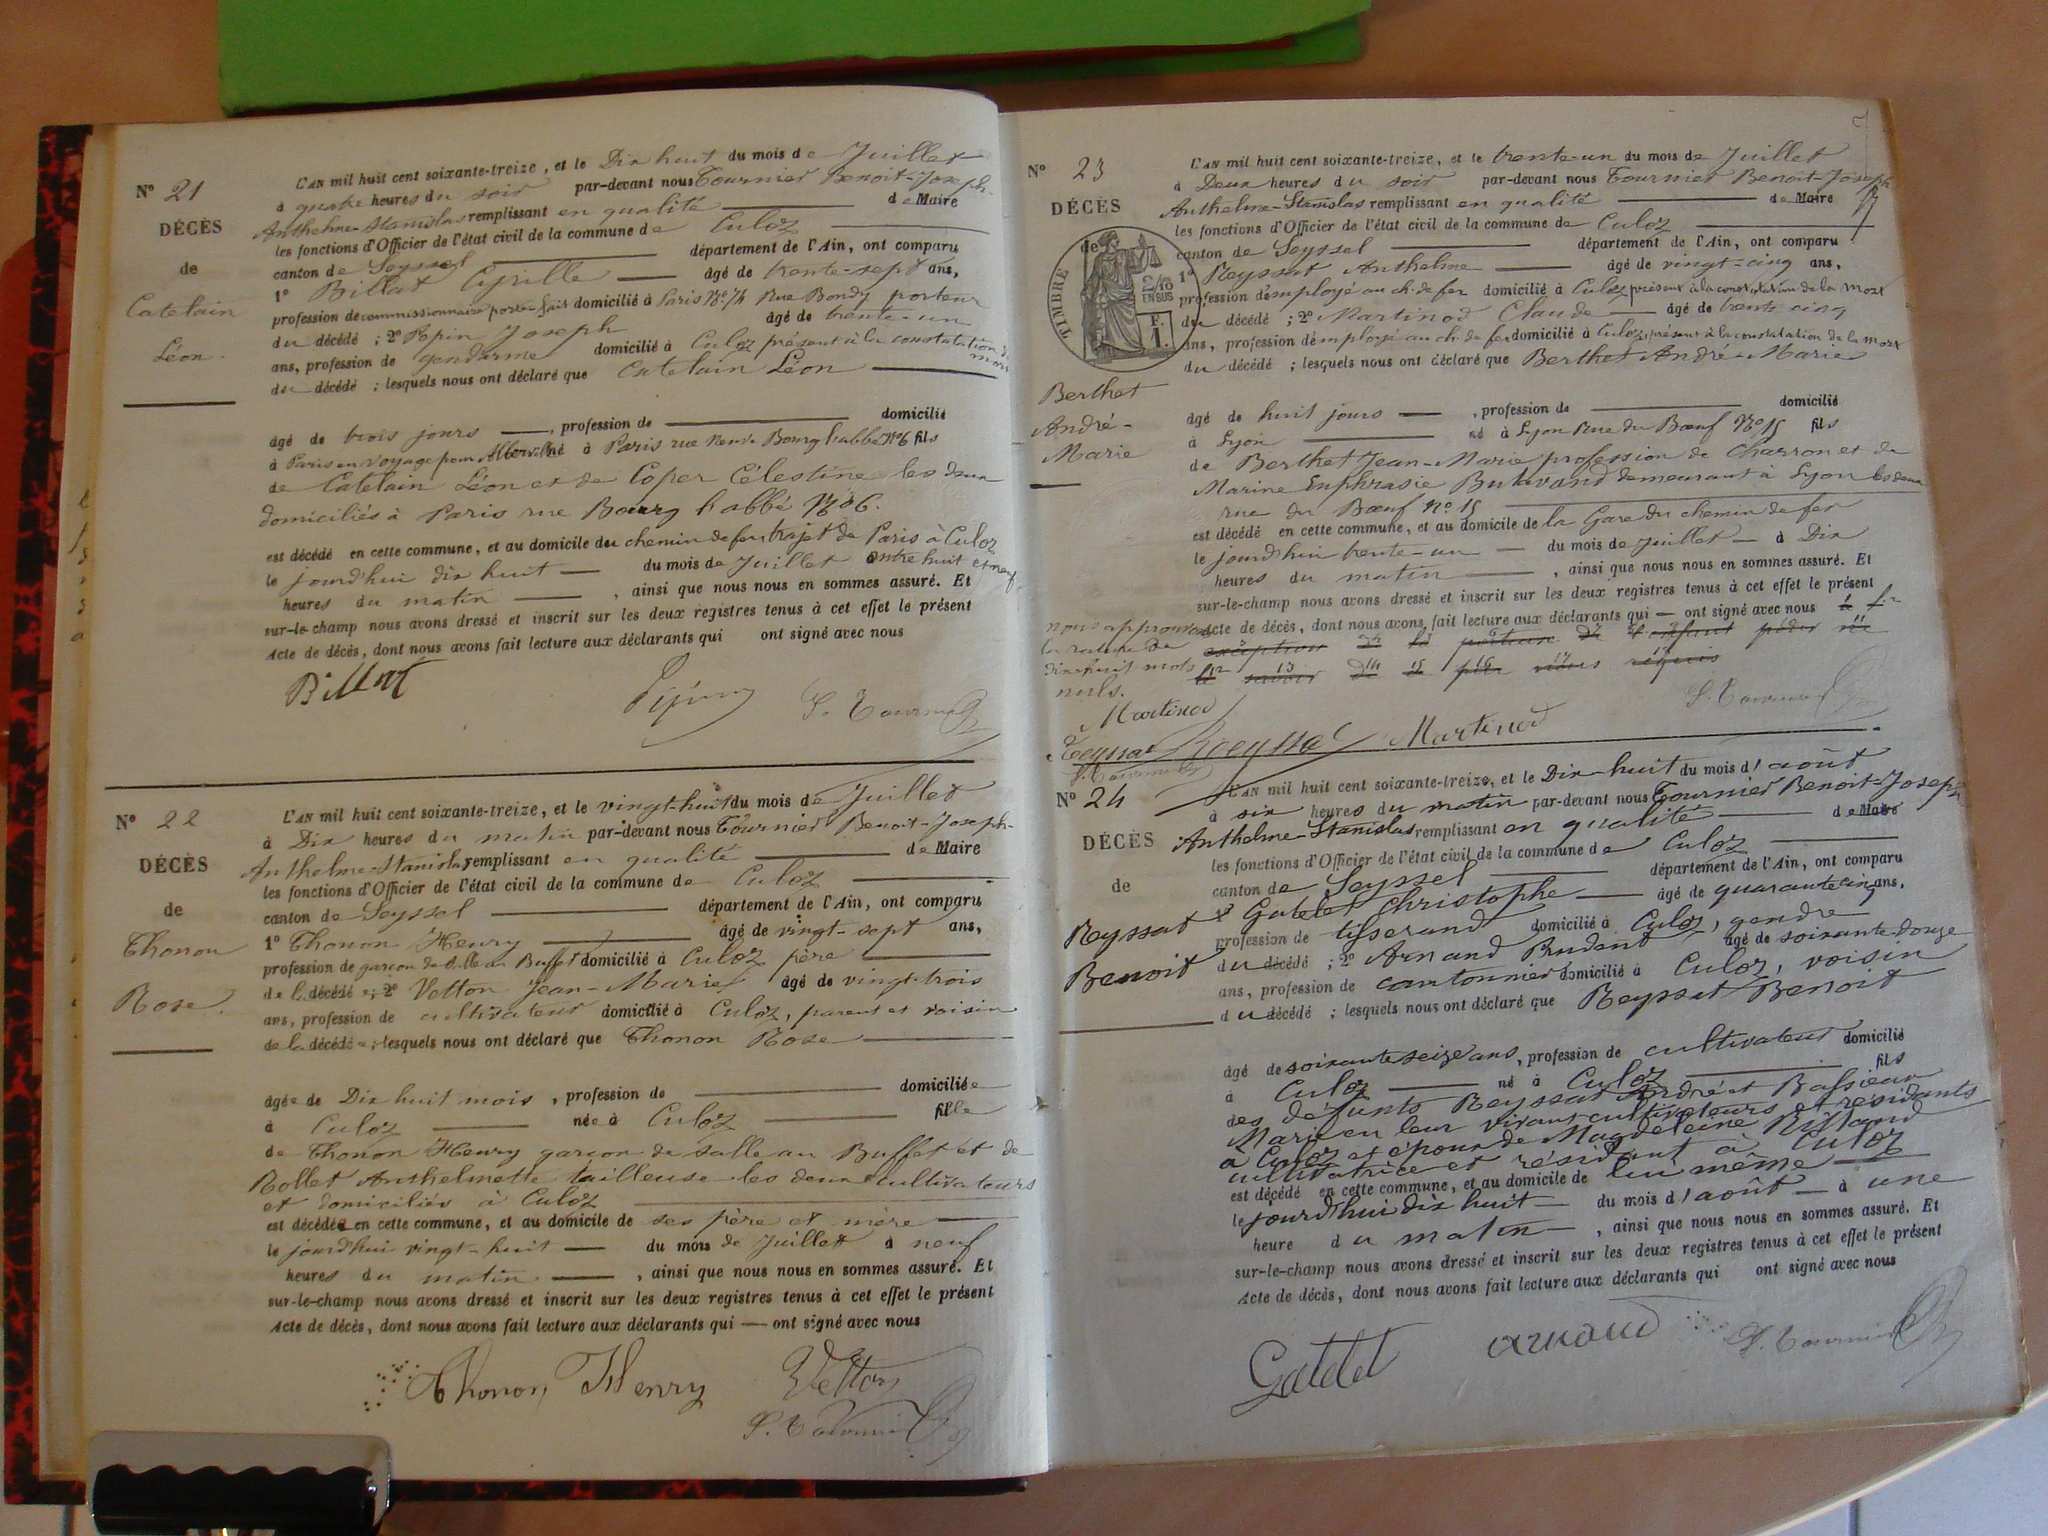 N° 21
DÉCÈS
de
Catelain
Léon.
L'AN mil huit cent soixante-treize, et le Dix huit du mois de Juillet
à quatre heures du soir par-devant nous Tournier Benoit-Joseph-
Anthelme-Stanislas remplissant en qualité de Maire
les fonctions d'Officier de l'état civil de la commune de Culoz
canton de Seyssel département de l'Ain, ont comparu
1° Billat Cyrille âgé de trente-sept ans,
profession de commissionnaire porte-faix domicilié à Paris N° 74 Rue Bondy porteur
du décédé ; 2° Pepin Joseph âgé de trente-un
ans, profession de gendarme domicilié à Culoz présent à la constatation de mort
du décédé ; lesquels nous ont déclaré que Catelain Léon
âgé de trois jours, profession de domicilié
à Paris en voyage pour Alberville né à Paris rue Neuve Bourg l'abbé N° 6 fils
de Catelain Léon et de Coper Célestine les deux
domiciliés à Paris rue Bourg l'abbé N° 6.
est décédé en cette commune, et au domicile du chemin de fer trajet de Paris à Culoz
le jourd'hui dix huit du mois de Juillet entre huit et neuf
heures du matin, ainsi que nous nous en sommes assuré. Et
sur-le-champ nous avons dressé et inscrit sur les deux registres tenus à cet effet le présent
Acte de décès, dont nous avons fait lecture aux déclarants qui ont signé avec nous
Billat Pepin S. Tournier
N° 22
DÉCÈS
de
Thonon
Rose.
L'AN mil huit cent soixante-treize, et le vingt-huit du mois de Juillet
à Dix heures du matin par-devant nous Tournier Benoit-Joseph-
Anthelme-Stanislas remplissant en qualité de Maire
les fonctions d'Officier de l'état civil de la commune de Culoz
canton de Seyssel département de l'Ain, ont comparu
1° Thonon Henry âgé de vingt-sept ans,
profession de garçon de salle au Buffet domicilié à Culoz père
de la décédée ; 2° Vetton Jean-Marie âgé de vingt-trois
ans, profession de cultivateur domicilié à Culoz, parent et voisin
de la décédée ; lesquels nous ont déclaré que Thonon Rose
âgée de Dix huit mois, profession de domiciliée
à Culoz née à Culoz fille
de Thonon Henry garçon de salle au Buffet et de
Rollet Anthelmette tailleuse les deux cultivateurs
et domiciliés à Culoz
est décédée en cette commune, et au domicile de ses père et mère
le jourd'hui vingt-huit du mois de Juillet à neuf
heures du matin, ainsi que nous nous en sommes assuré. Et
sur-le-champ nous avons dressé et inscrit sur les deux registres tenus à cet effet le présent
Acte de décès, dont nous avons fait lecture aux déclarants qui — ont signé avec nous
Thonon Henry Vetton
S. Tournier
7
N° 23
DÉCÈS
de
TIMBRE
2/10
EN SUS
F.
1.
Berthet
André-
Marie
L'AN mil huit cent soixante-treize, et le trente-un du mois de Juillet
à Deux heures du soir par-devant nous Tournier Benoit-Joseph
Anthelme-Stanislas remplissant en qualité de Maire
les fonctions d'Officier de l'état civil de la commune de Culoz
canton de Seyssel département de l'Ain, ont comparu
1° Reyssat Anthelme âgé de vingt-cinq ans,
profession d'employé au ch. de fer domicilié à Culoz présent à la constatation de la mort
du décédé ; 2° Martinod Claude âgé de trente cinq
ans, profession d'employé au ch. de fer domicilié à Culoz, présent à la constatation de la mort
du décédé ; lesquels nous ont déclaré que Berthet André-Marie
âgé de huit jours, profession de domicilié
à Lyon né à Lyon Rue du Bœuf N° 15 fils
de Berthet Jean-Marie profession de Charron et de
Marine Euphrasie demeurant à Lyon les deux
rue du Bœuf N° 15
est décédé en cette commune, et au domicile de la Gare du chemin de fer
le jourd'hui trente-un du mois de Juillet à Dix
heures du matin, ainsi que nous nous en sommes assuré. Et
sur-le-champ nous avons dressé et inscrit sur les deux registres tenus à cet effet le présent
Acte de décès, dont nous avons fait lecture aux déclarants qui — ont signé avec nous
exception de la porteuse de l'enfant
le savoir de le père requis
nous approuvons
la rature de
dix-huit mots
nuls.
Martinod
Reyssat Reyssat Martinod S. Tournier
S. Tournier
N° 24
DÉCÈS
de
Reyssat
Benoit
L'AN mil huit cent soixante-treize, et le Dix-huit du mois d'août
à six heures du matin par-devant nous Tournier Benoit-Joseph
Anthelme-Stanislas remplissant en qualité de Maire
les fonctions d'Officier de l'état civil de la commune de Culoz
canton de Seyssel département de l'Ain, ont comparu
1° Gatelet Christophe âgé de quarante cinq ans,
profession de tisserand domicilié à Culoz, gendre
du décédé ; 2° Arnaud Prudent âgé de soixante-douze
ans, profession de cantonnier domicilié à Culoz, voisin
du décédé ; lesquels nous ont déclaré que Reyssat Benoit
âgé de soixante seize ans, profession de cultivateur domicilié
à Culoz né à Culoz fils
des défunts Reyssat André et Bassieau
Marie en leur vivant cultivateurs et résidants
à Culoz et époux de Magdeleine Billand
cultivatrice et résidant à Culoz
est décédé en cette commune, et au domicile de lui même
le jourd'hui dix huit du mois d'août à une
heure du matin, ainsi que nous nous en sommes assuré. Et
sur-le-champ nous avons dressé et inscrit sur les deux registres tenus à cet effet le présent
Acte de décès, dont nous avons fait lecture aux déclarants qui ont signé avec nous
Gatelet arnaud S. Tournier